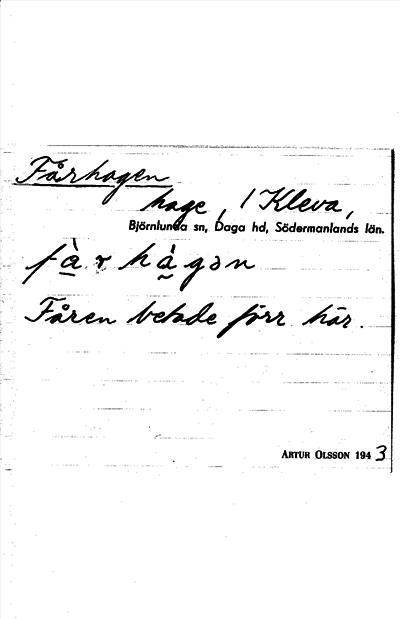 Fårhagen
hage, 1 Kleva,
Björnlunda sn, Daga hd, Södermanlands län.
fà̱rhà̱gən
Fåren betade förr här.
ARTUR OLSSON 1943